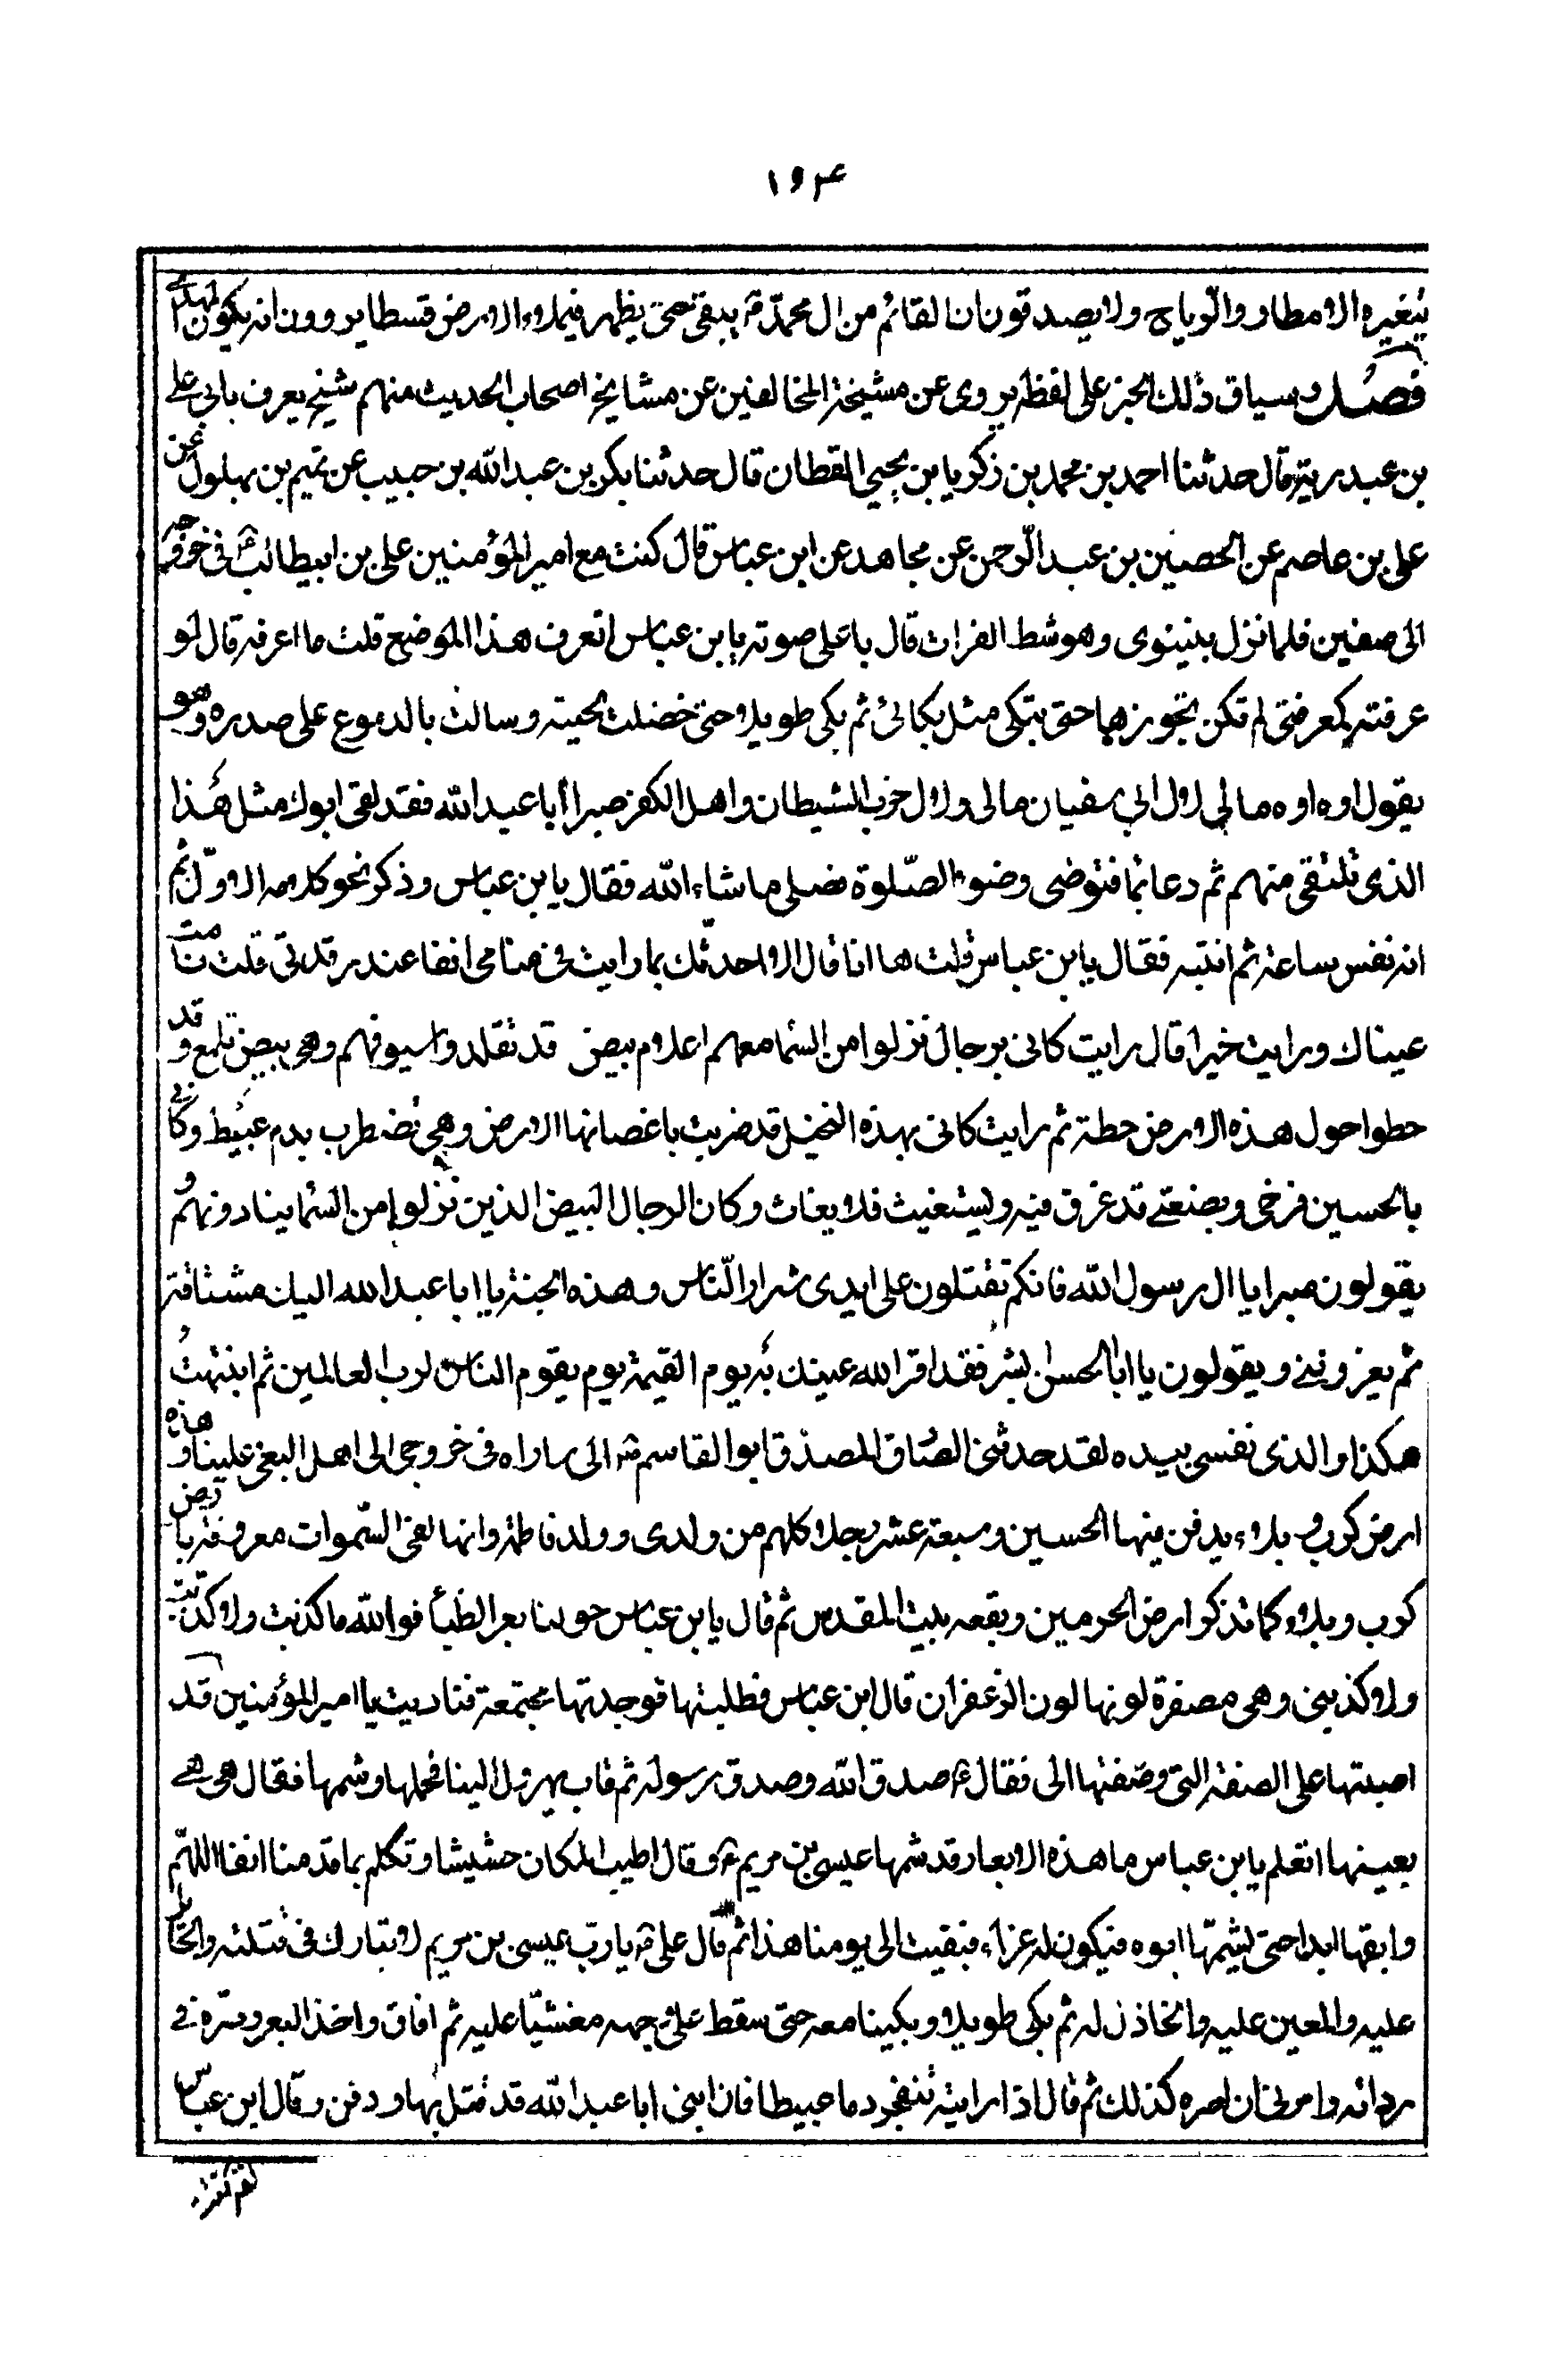 ١٩٤
يغيره الامطار والرياح ولا يصدقون ان القائم من ال محمد ع يبقى حتى يظهر فيملاء الارض قسطا يروون انه يكون المهدى
فصل وسياق ذلك الخبر على لفظه يروى عن مشيخة المخالفين عن مشايخ اصحاب الحديث منهم شيخ يعرف بابى على
بن عبد ربه قال حدثنا احمد بن محمد بن زكريا بن يحيى القطان قال حدثنا بكر بن عبد الله بن حبيب عن تميم بن بهلول عن
على بن عاصم عن الحصين بن عبد الرحمن عن مجاهد عن ابن عباس قال كنت مع امير المؤمنين على بن ابيطالب ع فى خروجه
الى صفين فلما نزل بنينوى وهو شط الفرات قال باعلى صوته يابن عباس اتعرف هذا الموضع قلت ما اعرفه قال لو
عرفته كمعرفتى لم تكن تجوزها حتى تبكى مثل بكائى ثم بكى طويلا حتى خضلت لحيته وسالت بالدموع على صدره وهو
يقول اوه اوه مالى لال ابى سفيان مالى ولال حزب الشيطان واهل الكفر صبرا أبا عبد الله فقد لقى ابوك مثل هذا
الذى تلتقى منهم ثم دعا بما فتوضى وضوء الصلوة فصلى ما شاء الله فقال يابن عباس وذكر نحو كلامه الاول ثم
انه نفس ساعة ثم انتبه فقال يابن عباس قلت ها انا قال الا احدثك بما رايت فى منامى انفا عند رقدتى قلت نامت
عيناك ورايت خيرا قال رايت كانى برجال نزلوا من السما معهم اعلام بيض قد تقلدوا سيوفهم وهى بيض تلمع وقد
خطوا حول هذه الارض خطة ثم رايت كانى بهذه النخيل قد ضربت باغصانها الارض وهى تضطرب بدم عبيط وكانى
بالحسين فرخى وبضعتى قد غرق فيه وليستغيث فلا يغاث وكان الرجال البيض الذين نزلوا من السما ينادونهم و
يقولون صبرا يا ال رسول الله فانكم تقتلون على ايدى شرار الناس وهذه الجنة يا ابا عبد الله اليك مشتاقة
ثم يعزوننى ويقولون يا ابا الحسن ابشر فقد اقر الله عينك به يوم القيمة يوم يقوم الناس لرب العالمين ثم انتبهت
هكذا والذى نفسى بيده لقد حدثنى الصادق المصدق ابو القاسم ص انى ساراه فى خروجى الى اهل البغى علينا وهذه
ارض كرب وبلاء يدفن فيها الحسين وسبعة عشر رجلا كلهم من ولدى وولد فاطمة وانها لفى السموات معروفة بارض
كرب وبلاء كما تذكر ارض الحرمين وبقعه بيت المقدس ثم قال يابن عباس حولنا بعر الظبأ فوالله ما كذبت ولا كذبت
ولا كذبنى وهى مصفرة لونها لون الزعفران قال ابن عباس فطلبتها فوجدتها مجتمعة فناديت يا امير المؤمنين قد
اصبتها على الصفة التى وصفتها الى فقال ع صدق الله وصدق رسوله ثم قام يهرول الينا فحملها وشمها فقال هى هى
بعينها اتعلم يابن عباس ما هذه الابعار قد شمها عيسى بن مريم ع وقال اطيب المكان حشيشا وتكلم بما قدمنا انفا اللهم
وابقها ابدا حتى يشمها ابوه فيكون له عزاء فبقيت الى يومنا هذا ثم قال على ع يا رب عيسى بن مريم لا تبارك فى قتلته والحامل
عليه والمعين عليه والخاذل له ثم بكى طويلا وبكينا معه حتى سقط على وجهه مغشيا عليه ثم افاق واخذ البعر وصره فى
ردائه وامرنى ان اصره كذلك ثم قال اذا رايته تنفجر دما عبيطا فان ابنى ابا عبد الله قد قتل بها ودفن وقال ابن عباس